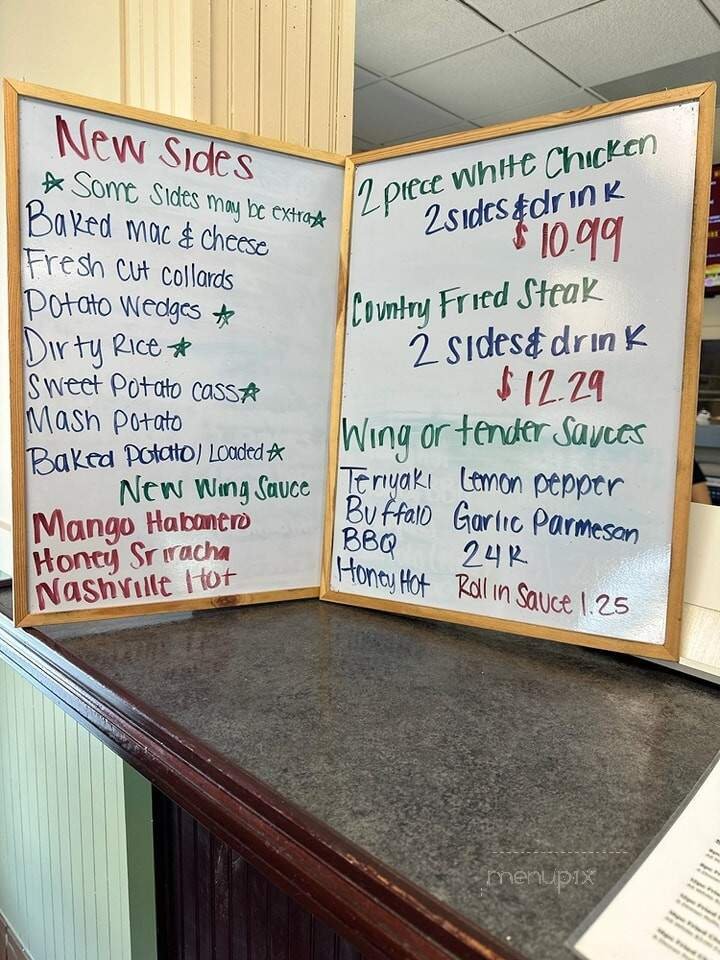 New Sides
☆ Some Sides may be extra ☆
Baked mac & cheese
Fresh cut collards
Potato Wedges ☆
Dirty Rice ☆
Sweet Potato cass ☆
Mash Potato
Baked Potato/Loaded ☆
New Wing Sauce
Mango Habanero
Honey Sriracha
Nashville Hot
2 piece white Chicken
2 sides & drink
$ 10.99
Country Fried Steak
2 sides & drink
$ 12.29
Wing or tender Sauces
Teriyaki Lemon pepper
Buffalo Garlic Parmesan
BBQ 24K
Honey Hot Roll in Sauce 1.25
menupix